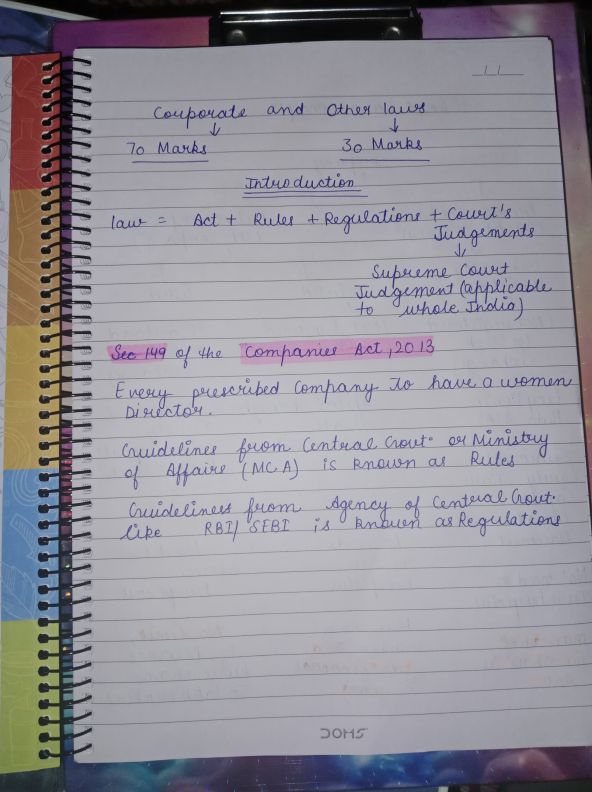 Corporate and Other laws
↓ ↓
70 Marks 30 Marks
Introduction
law = Act + Rules + Regulations + Court's
Judgements
↓
Supreme Court
Judgement (applicable
to whole India)
Sec 149 of the Companies Act, 2013
Every prescribed Company to have a women
Director.
Guidelines from Central Govt. or Ministry
of Affairs (MCA) is known as Rules
Guidelines from Agency of Central Govt.
like RBI/ SEBI is known as Regulations
DOMS